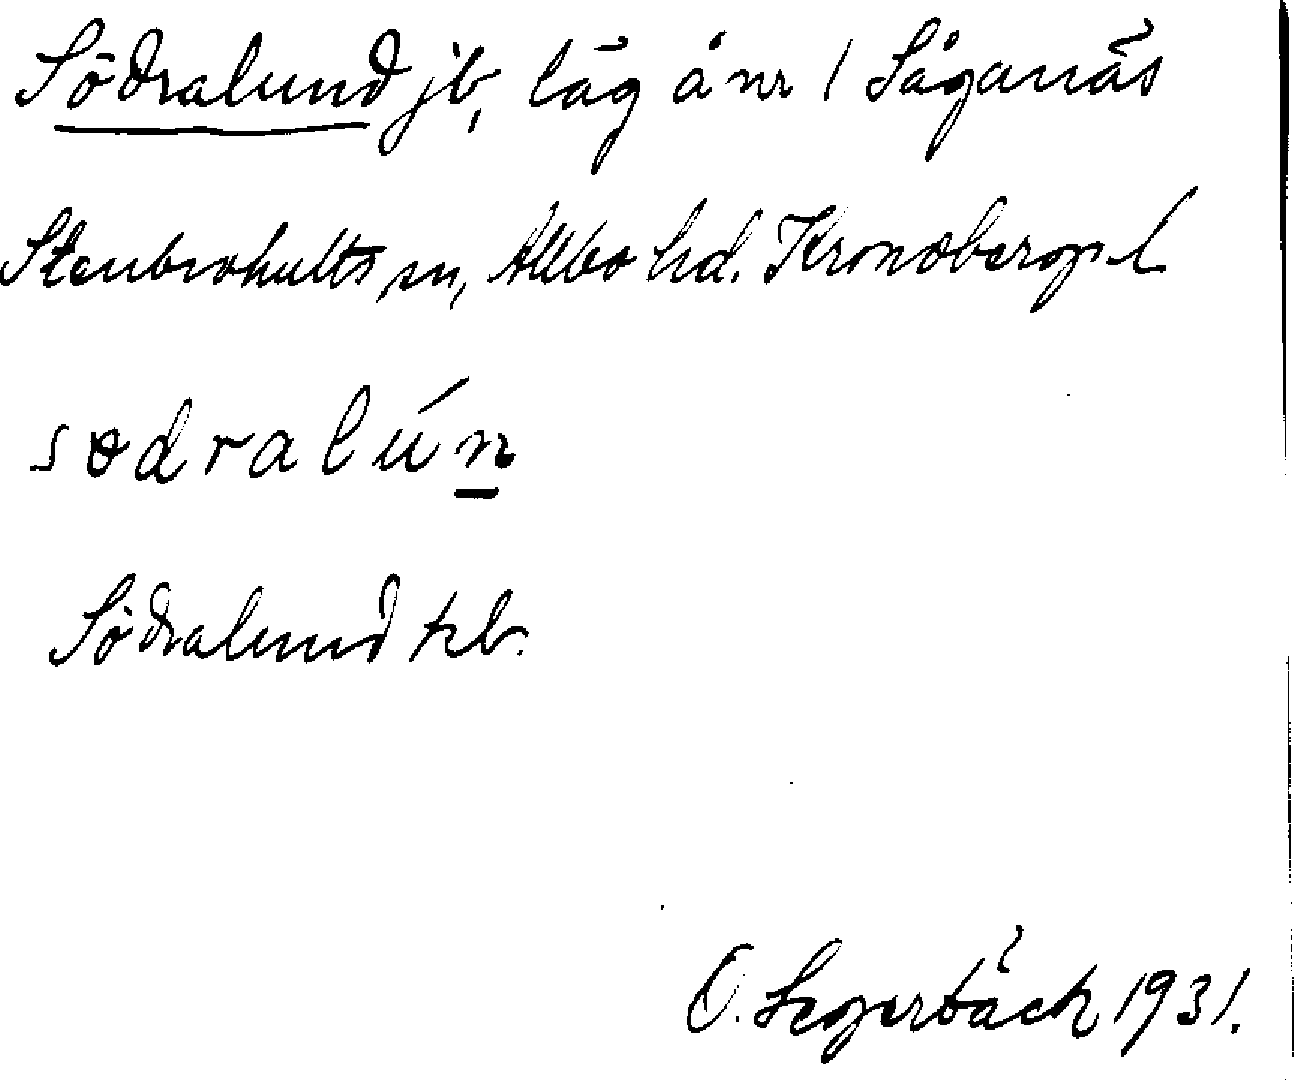 Södralund jb, läg å nr 1 Såganäs
Stenbrohults sn, Allbo hd. Kronobergs l
sødralún
Södralund kb.
O. Segerbäck 1931.